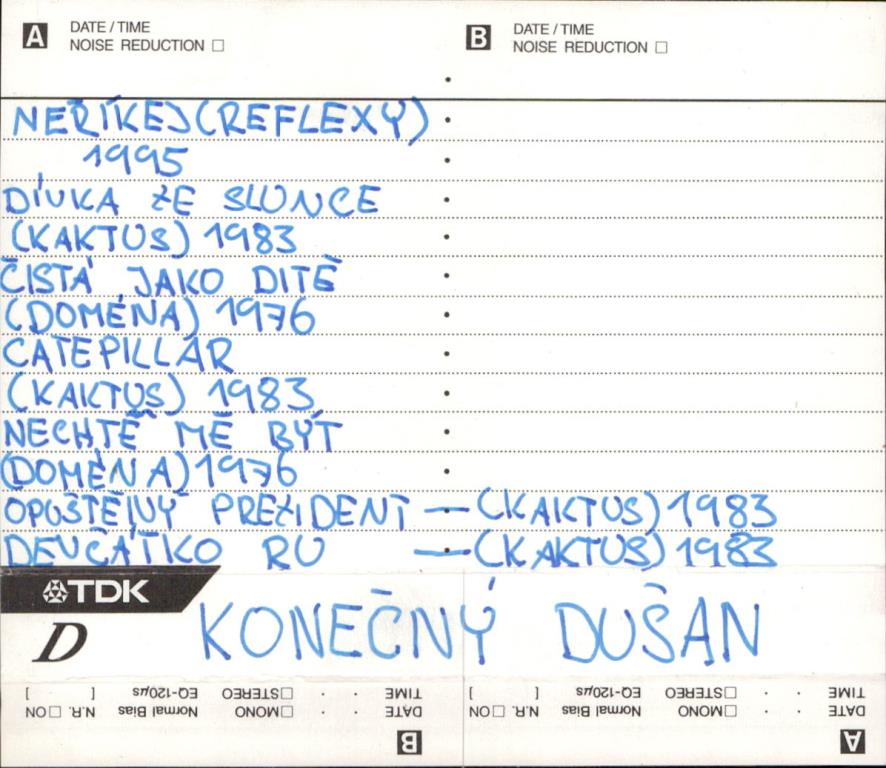 A DATE / TIME
NOISE REDUCTION
B DATE / TIME
NOISE REDUCTION
NEŘÍKEJ (REFLEXY)
1995
DÍVKA ZE SLUNCE
(KAKTUS) 1983
ČISTÁ JAKO DITĚ
(DOMÉNA) 1976
CATEPILLAR
(KAKTUS) 1983
NECHTĚ MĚ BÝT
(DOMÉNA) 1976
OPUŠTĚNÝ PREZIDENT — (KAKTUS) 1983
DEVČÁTKO RU — (KAKTUS) 1983
TDK
D
KONEČNÝ DUŠAN
A
DATE · · □MONO Normal Bias N.R. □ON
TIME · · □STEREO EQ-120µs [ ]
B
DATE · · □MONO Normal Bias N.R. □ON
TIME · · □STEREO EQ-120µs [ ]